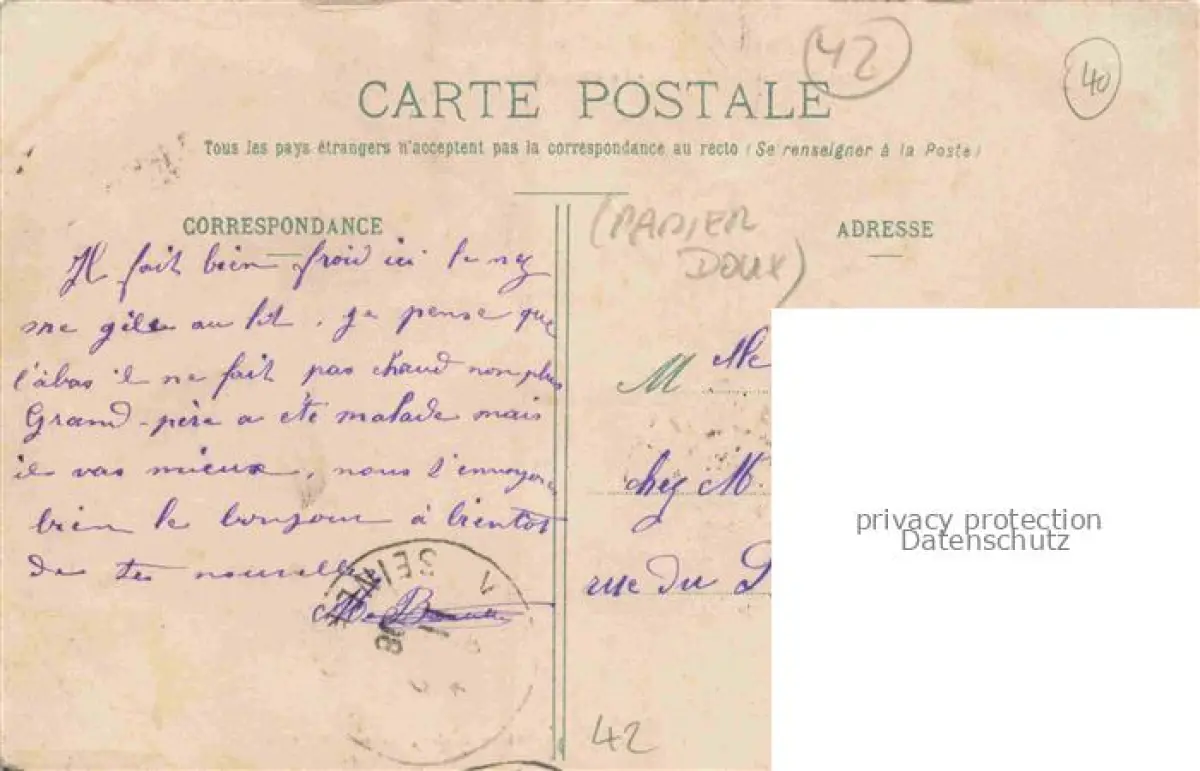 42
40
CARTE POSTALE
Tous les pays étrangers n'acceptent pas la correspondance au recto (Se renseigner à la Poste)
CORRESPONDANCE
Il fait bien froid ici le nez
me gèle au lit, je pense que
l'àbas il ne fait pas chaud non plus
Grand-père a été malade mais
il vas mieux, nous t'envoyons
bien le bonjour à bientot
des tes nouvelles
SEINE
1
08
(PAPIER
DOUX)
ADRESSE
M Mle
chez M.
rue du
42
privacy protection
Datenschutz